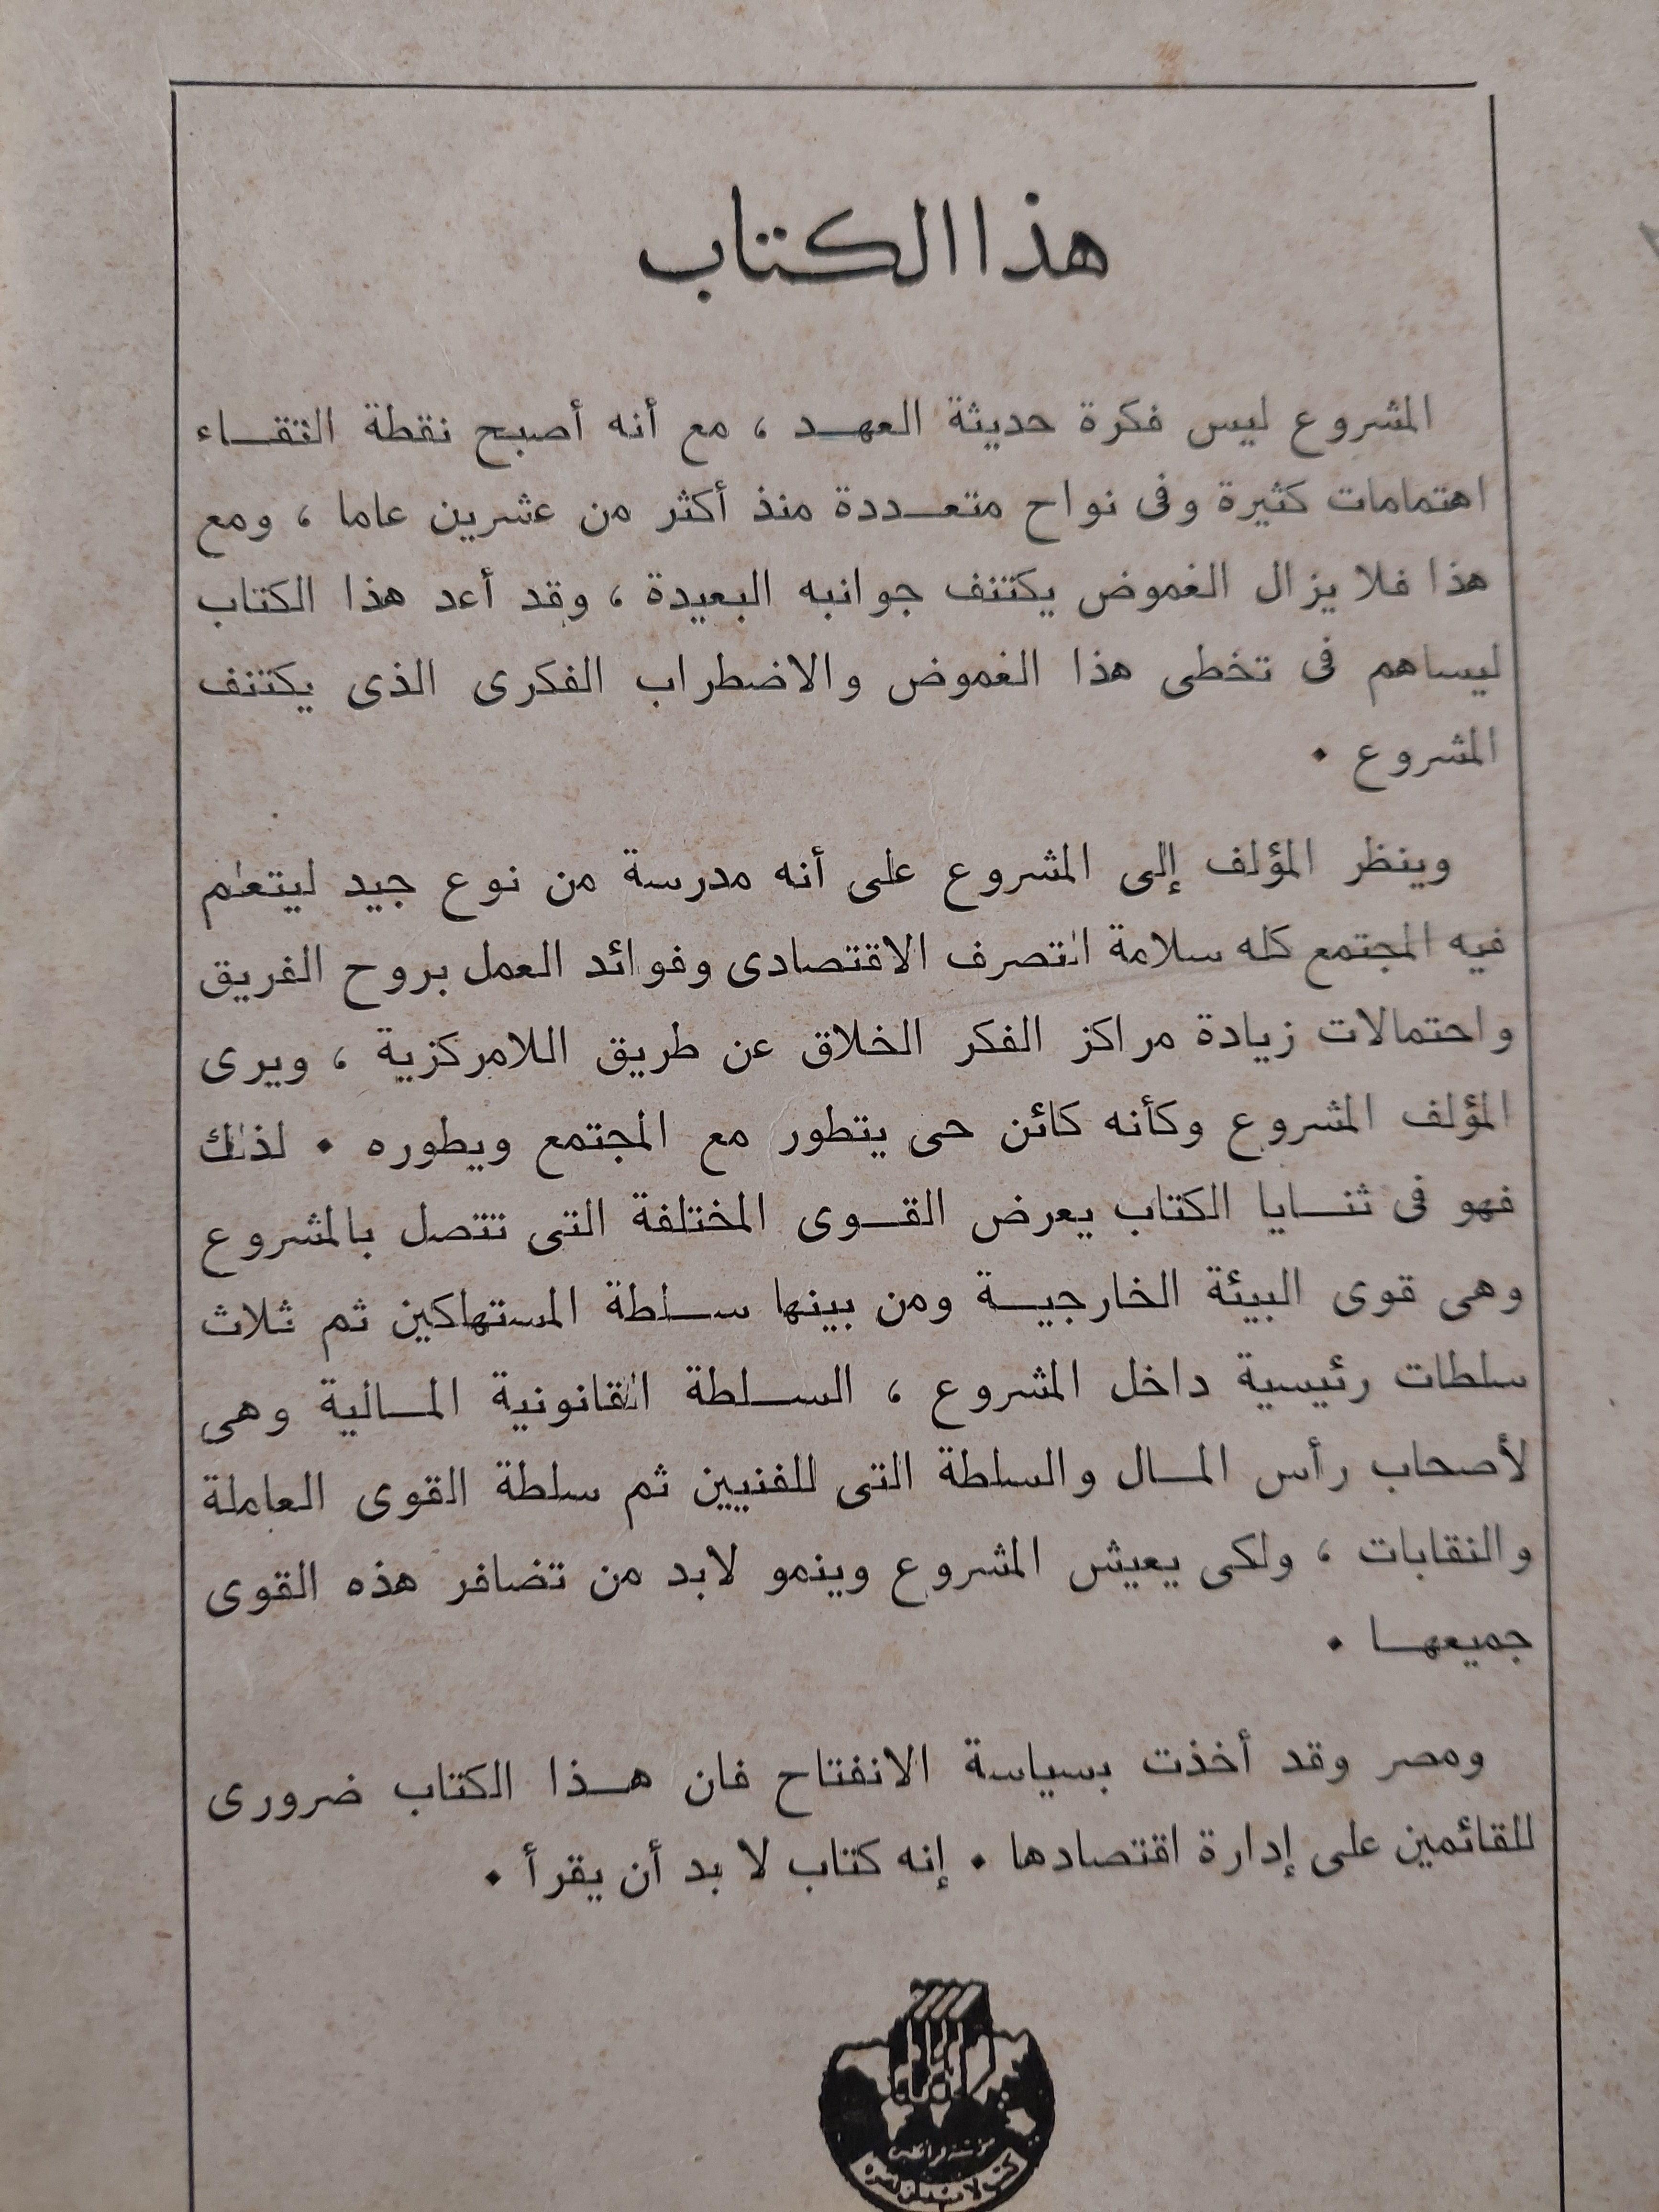 هذا الكتاب
المشروع ليس فكرة حديثة العهد ، مع أنه أصبح نقطة التقاء
اهتمامات كثيرة وفى نواح متعددة منذ أكثر من عشرين عاما ، ومع
هذا فلا يزال الغموض يكتنف جوانبه البعيدة ، وقد أعد هذا الكتاب
ليساهم فى تخطى هذا الغموض والاضطراب الفكرى الذى يكتنف
المشروع ٠
وينظر المؤلف إلى المشروع على أنه مدرسة من نوع جيد ليتعلم
فيه المجتمع كله سلامة التصرف الاقتصادى وفوائد العمل بروح الفريق
واحتمالات زيادة مراكز الفكر الخلاق عن طريق اللامركزية ، ويرى
المؤلف المشروع وكأنه كائن حى يتطور مع المجتمع ويطوره ٠ لذلك
فهو فى ثنايا الكتاب يعرض القوى المختلفة التى تتصل بالمشروع
وهى قوى البيئة الخارجية ومن بينها سلطة المستهلكين ثم ثلاث
سلطات رئيسية داخل المشروع ، السلطة القانونية المالية وهى
لأصحاب رأس المال والسلطة التى للفنيين ثم سلطة القوى العاملة
والنقابات ، ولكى يعيش المشروع وينمو لابد من تضافر هذه القوى
جميعها ٠
ومصر وقد أخذت بسياسة الانفتاح فان هذا الكتاب ضرورى
للقائمين على إدارة اقتصادها ٠ إنه كتاب لا بد أن يقرأ ٠